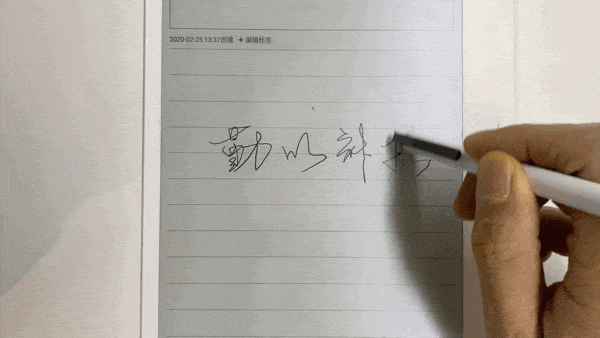 2020-02-25 13:37创建 + 编辑标签
勤以补拙